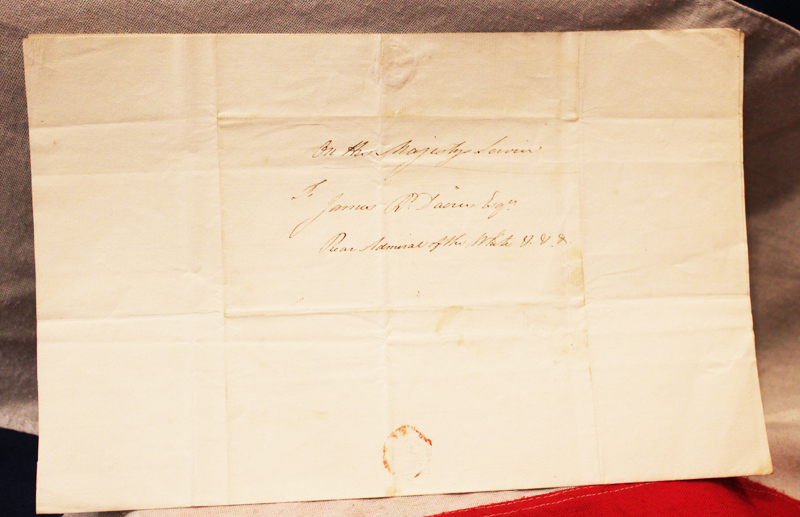 On His Majestys Service
To
James Rd Dacres Esqr
Rear Admiral of the White &. &. &.